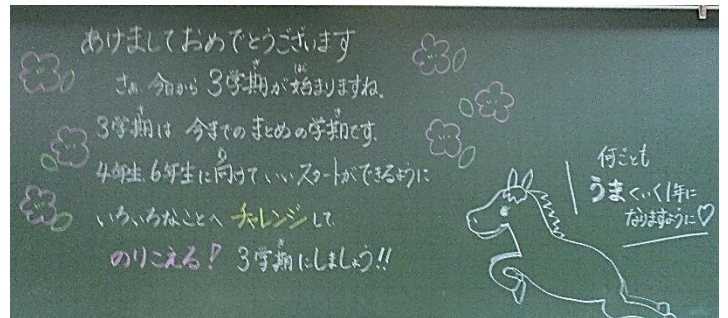 あけましておめでとうございます
さぁ、今日から3学期が始まりますね。
3学期は 今までの まとめの学期です。
4年生、6年生に向けていいスタートができるように
いろいろなことへ チャレンジして
のりこえる! 3学期にしましょう!!
何ごとも
うまくいく1年に
なりますように♡